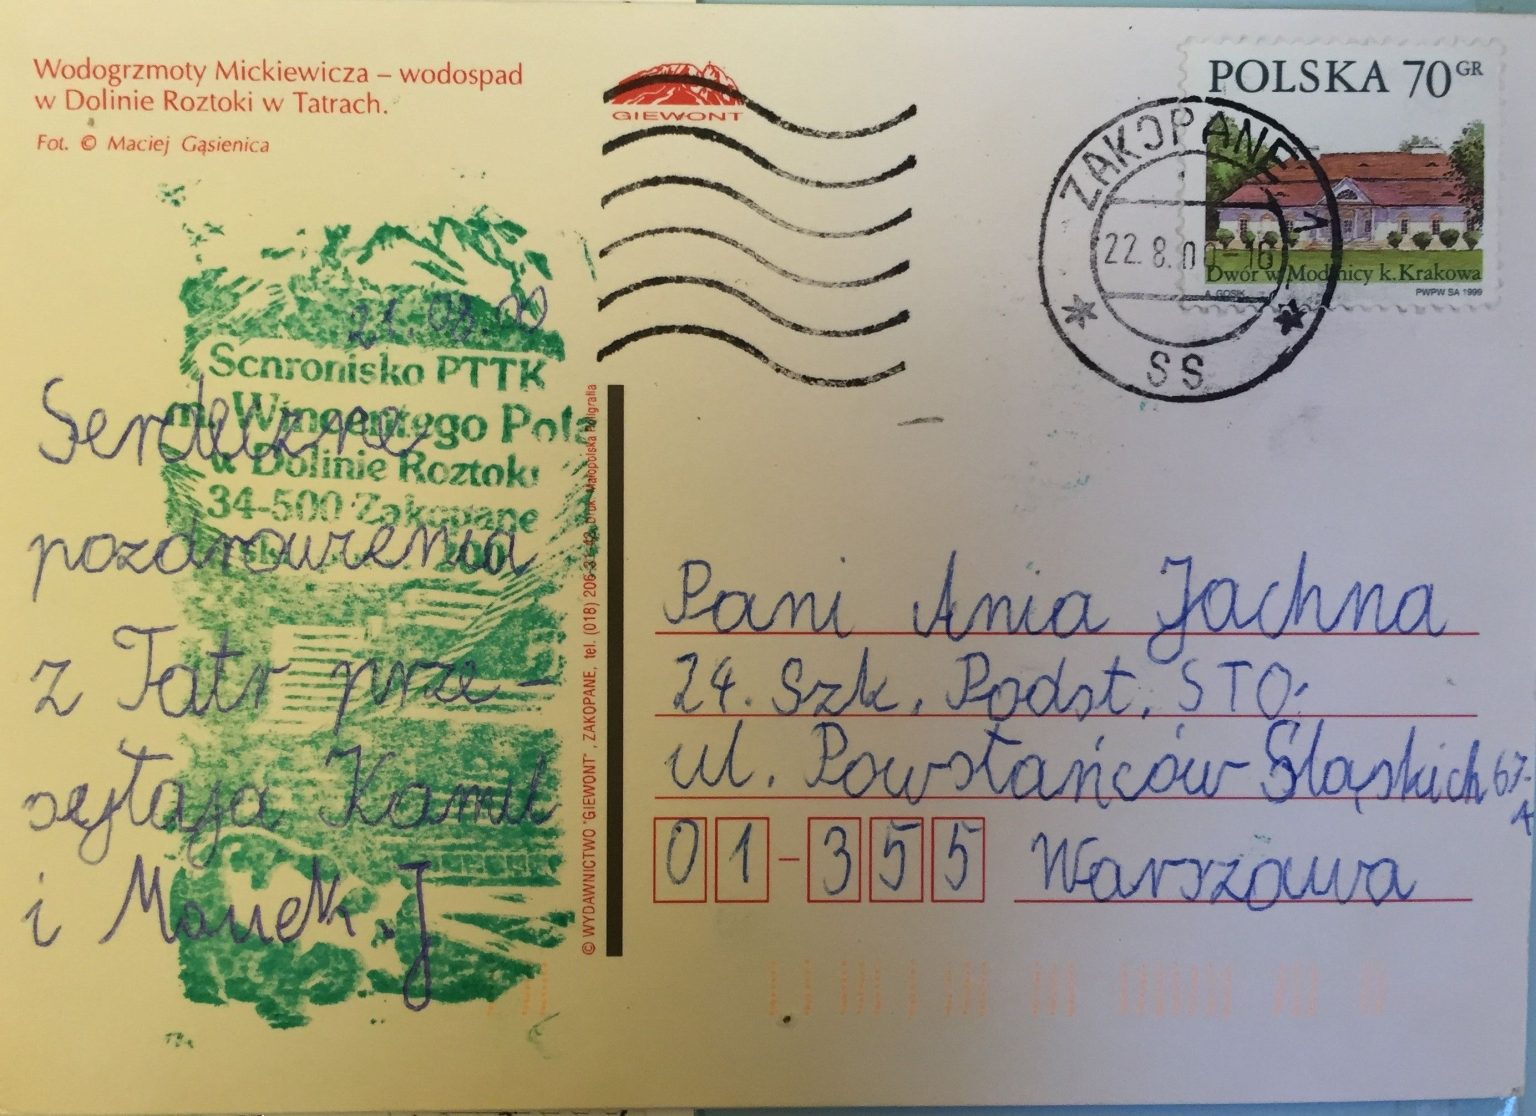 Wodogrzmoty Mickiewicza – wodospad
w Dolinie Roztoki w Tatrach.
Fot. © Maciej Gąsienica
GIEWONT
POLSKA 70 GR
Dwór w Modlnicy k. Krakowa
PWPW SA 1999
ZAKOPANE 1
22.8.00-16
SS
21.08.00
Schronisko PTTK
im. Wincentego Pola
w Dolinie Roztoki
34-500 Zakopane
Serdeczne
pozdrowienia
z Tatr prze-
syłają Kamil
i Marek. J
© WYDAWNICTWO "GIEWONT", ZAKOPANE, tel. (018) 206 31 42, Druk. Małopolska Poligrafia
Pani Ania Jachna
24. Szk. Podst. STO.
ul. Powstańców Śląskich 67-
A
01-355 Warszawa